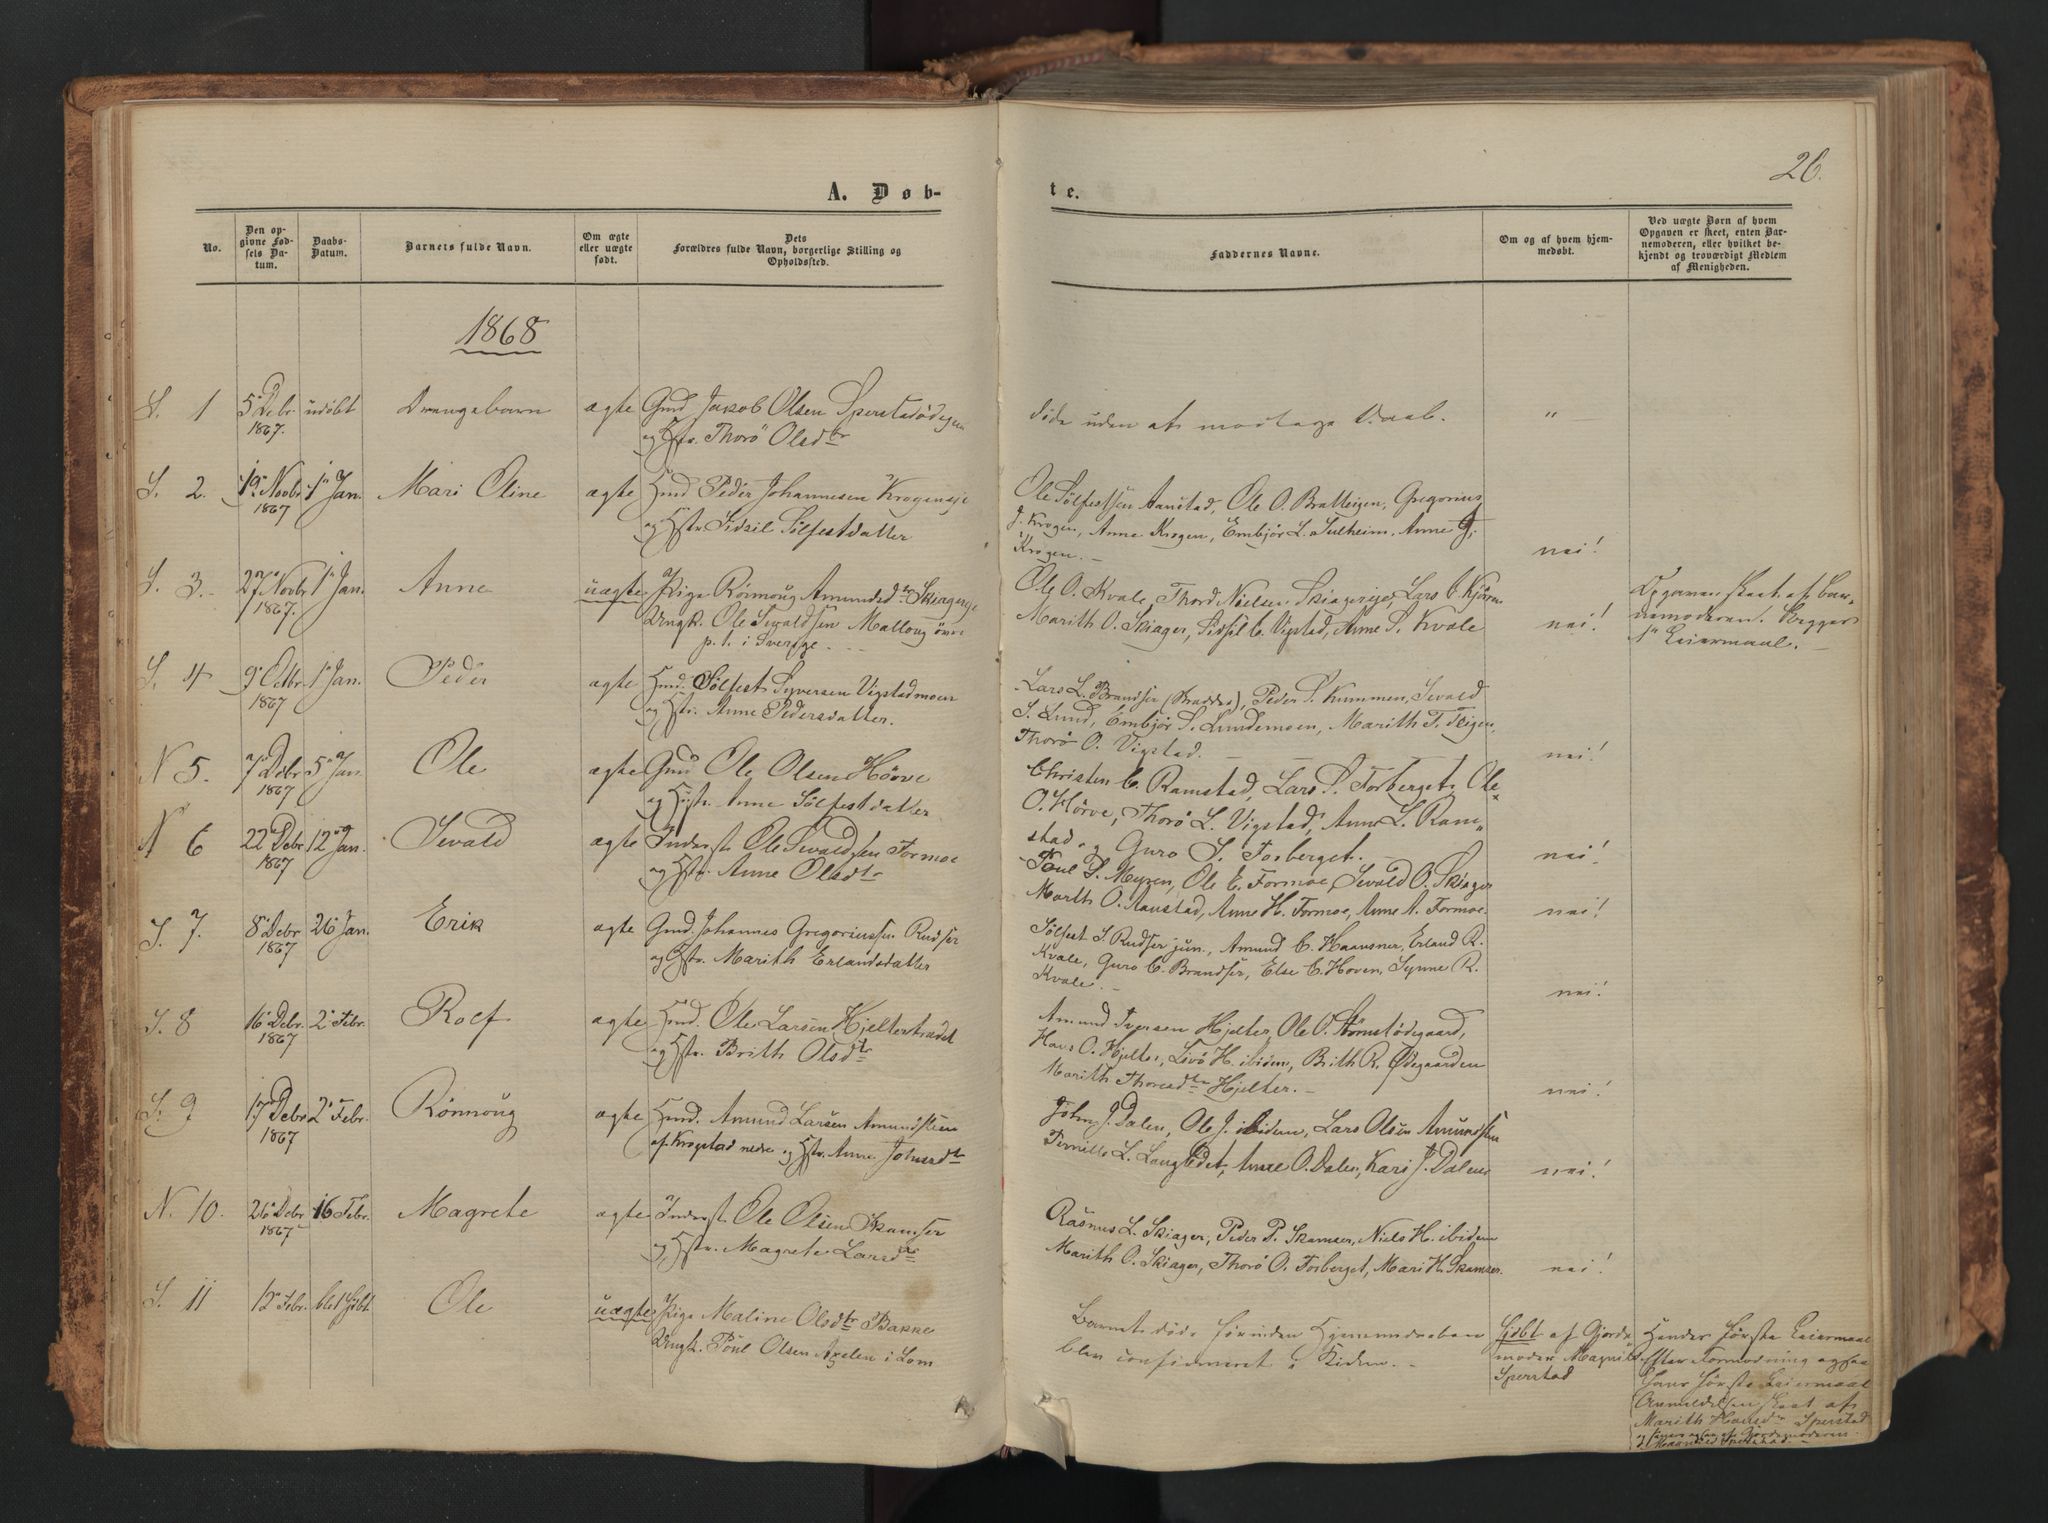 26.
A. Døb-
te.
No.
Den op-
givne Fød-
sels Da-
tum.
Daabs-
Datum.
Barnets fulde Navn.
Om ægte
eller uægte
født.
Dets
Forældres fulde Navn, borgerlige Stilling og
Opholdssted.
Faddernes Navne.
Om og af hvem hjem-
medøbt.
Ved uægte Børn af hvem
Opgaven er skeet, enten Bar-
nemoderen, eller hvilket be-
kjendt og troværdigt Medlem
af Menigheden.
1868
S. 1 5 Debr. udøbt Drengebarn ægte Gmd Jakob Olsen Sperstadødegrd
1867. og Hstr. Thorö Olsdtr
døde uden at modtage Daab. "
S. 2. 19 Novbr 1 Jan. Mari Oline ægte Hmd Peder Johannesen Krogeneje
1867 og Hstr. Sidsil Sölfestdatter
Ole Sölfestsen Aanstad, Ole O. Bratteigen, Gregorius
J. Krogen, Anne Krogen, Embjör L. Sulheim, Anne G.
Krogen. - nei!
S. 3. 27 Novbr 1 Jan. Anne uægte Pige Rönnoug Amundsdtr Skiagereje
1867. Ungk. Ole Sivaldsen Malloug övre
p. t. i Sverige
Ole O. Kvale, Thord Nielsen Skiagereje, Lars C. Kjörren
Marith O. Skiager, Sidsil C. Vigstad, Anne S. Kvale nei!
Opgaven skeet af bar-
nemoderen. Begges
1 Leiermaal. -
S. 4 9 Octbr 1 Jan. Peder ægte Hmd. Sölfest Syversen Vigstadmoen
1867 og Hstr. Anne Pedersdatter.
Lars L. Brandser (Bradder), Peder P. Kummen, Sivald
S. Lund, Embjör S. Lundemoen, Marith T. Teigen,
Thorö O. Vigstad. - nei!
N 5. 7 Debr 5 Jan. Ole ægte Gmd Ole Olsen Hörve
1867 og Hstr. Anne Sölfestdatter
Christen C. Ramstad, Lars P. Forberget, Ole
O. Hörve, Thorö L. Vigstad, Anne L. Ram-
stad, og Guro S. Forberget. nei!
N 6 22 Debr 12 Jan. Sivald ægte Inderst Ole Sivaldsen Formoe
1867 og Hstr. Anne Olsdtr
Poul P. Myren, Ole E. Formoe, Sivald O. Skiager
Marth O. Aanstad, Anne H. Formoe, Anne A. Formoe. nei!
S. 7. 8 Debr 26 Jan. Erik ægte Gmd. Johannes Gregoriussen Rudser
1867 og Hstr. Marith Erlandsdatter
Sölfest S. Rudser jun., Amund C. Haansnar, Erland R.
Kvale, Guro C. Brandser, Else C. Hoven, Synne R.
Kvale. - nei!
S. 8 16 Debr. 2 Febr. Rolf ægte Hmd. Ole Larsen Hjeltertrædet
1867 og Hstr. Brith Olsdtr
Amund Iversen Hjelter, Ole O. Tömstödegaard,
Hans O. Hjelter, Livö H. ibidem, Brith R. Ödegaarden
Marith Thoresdtr Hjelter. - nei!
S. 9 17 Debr 2 Febr. Rönnoug ægte Hmd. Amund Larsen Amundsteen
1867 af Krogstad nedre og Hstr. Anne Johnsdtr
John J. Dalen, Ole J. ibidem, Lars Olsen Amundsten
Pernille L. Langledet, Anne O. Dalen, Kari J. Dalen nei!
N. 10. 26 Debr 16 Febr. Magrete ægte Inderst Ole Olsen Skamser
1867 og Hstr. Magrete Larsdtr
Rasmus L. Skiager, Peder P. Skamser, Niels H. ibidem
Marith O. Skiager, Thorö O. Forberget, Mari H. Skamser. nei!
S. 11 12 Febr. blot hjdbt Ole uægte Pige Maline Olsdtr Bakke
Ungk. Poul Olsen Axelen i Lom
Barnet døde førinden Hjemmedaaben
blev confirmeret i Kirken. -
hjdbt af Gjorde-
moder Magnild
Sperstad
Hendes første Leiermaal
Efter Formodning ogsaa
hans første Leiermaal
Anmeldelsen skeet af
Marith Hansdtr Sperstad
og senere ogsaa af Gjordemoderen
Magnild Sperstad.